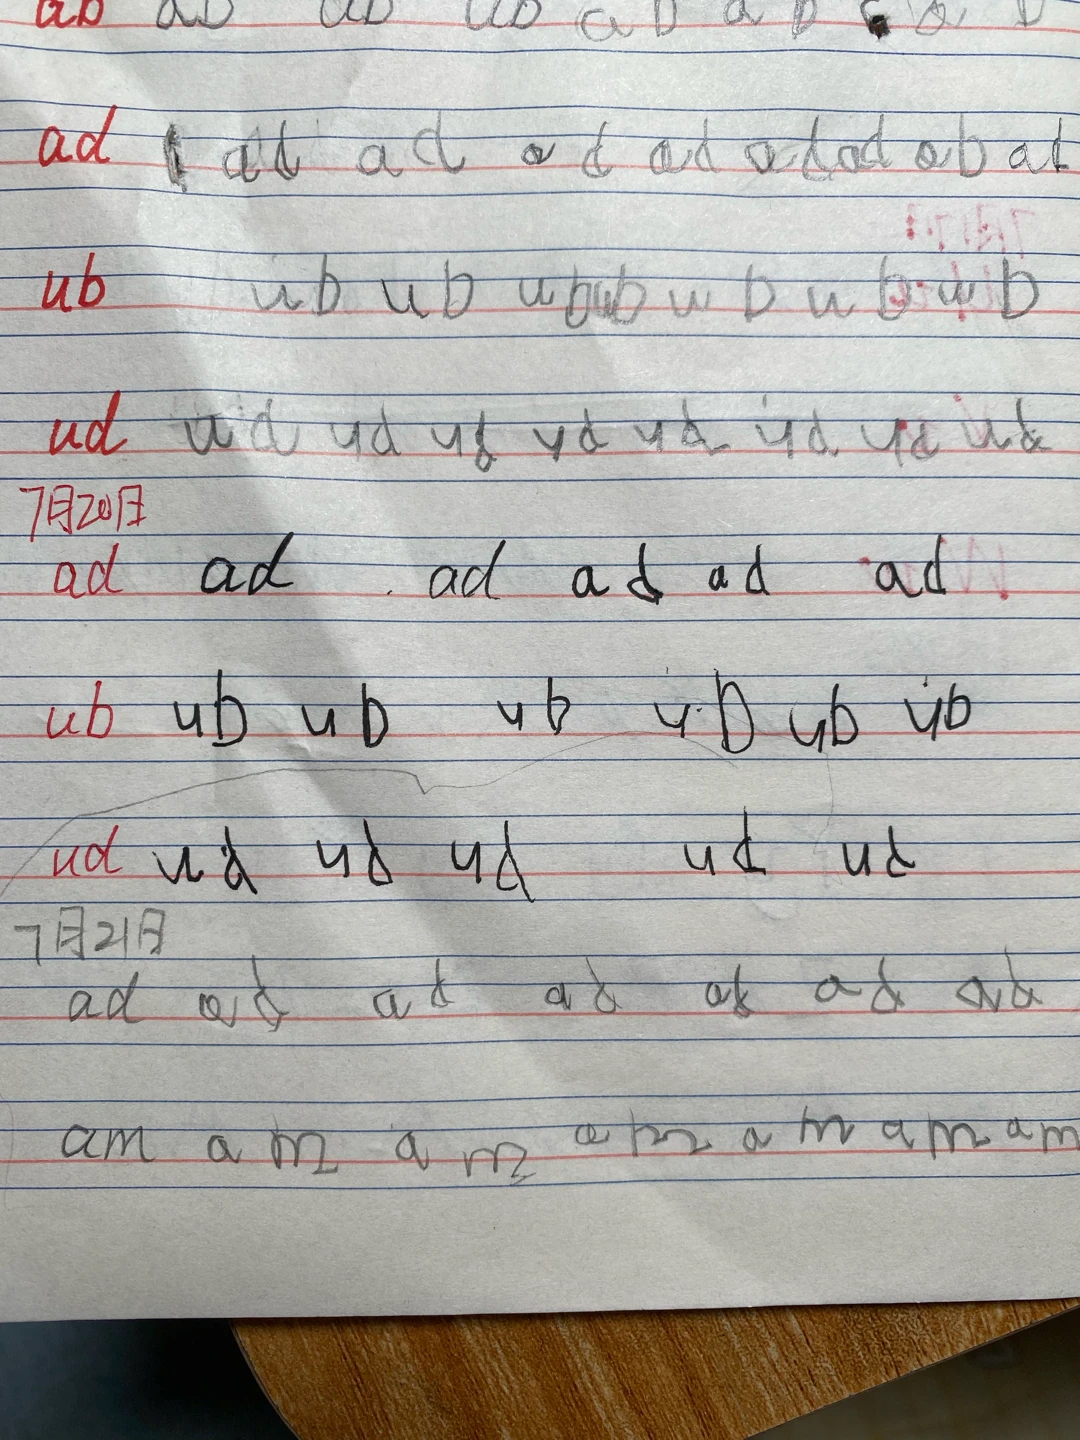 ab ab ab ub a b a b a b
ad ad ad a d ad ad ad ab ad
ub ub ub ub ub u b u b u b
ud ud ud ud ud ud ud ud ud
7月20日
ad ad ad ad ad ad
ub ub ub ub ub ub ub
ud ud ud ud ud ud
7月21日
ad ad ad ad ad ad ad
am am am am am am am